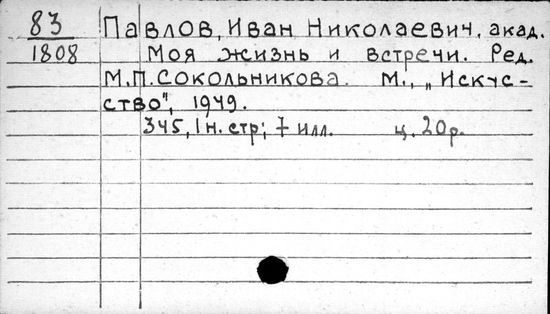 83 Павлов, Иван Николаевич, акад.
1808 Моя жизнь и встречи. Ред.
М.П. Сокольникова. М., „Искус-
ство", 1949.
345, 1 н. стр; 7 илл. ц. 20 р.